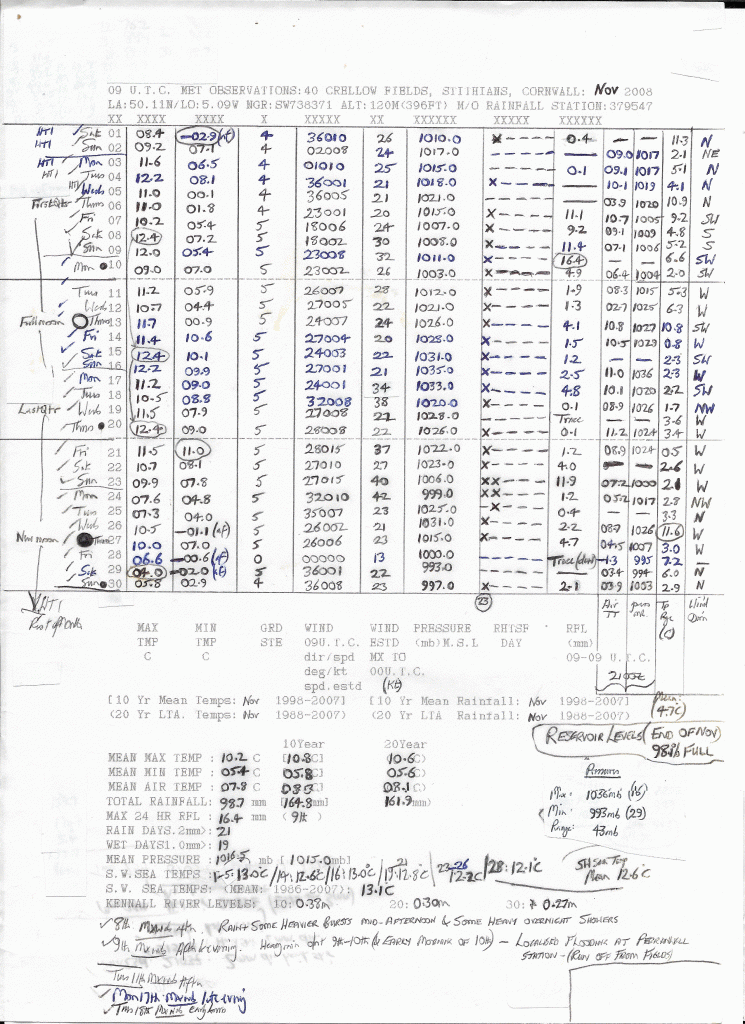 09 U.T.C. MET OBSERVATIONS:40 CRELLOW FIELDS, STITHIANS, CORNWALL: Nov 2008
LA:50.11N/LO:5.09W NGR:SW738371 ALT:120M(396FT) M/O RAINFALL STATION:379547
XX XXXX XXXX X XXXXX XX XXXXXX XXXXX XXXXXX
HT1 Sat 01 08.4 -02.9 (af) 4 36010 26 1010.0 ----- 0.4 — — 11.3 N
Sun 02 09.2 07.1 4 02008 24 1017.0 ----- — 09.0 1017 2.1 NE
HT1 Mon 03 11.6 06.5 4 01010 25 1015.0 ----- 0.1 09.1 1017 5.1 N
HT1 Tues 04 12.2 08.1 4 36001 21 1018.0 X----- — 10.1 1019 4.1 N
HT1 Weds 05 11.0 00.1 4 36005 21 1021.0 ----- — 03.9 1020 10.9 N
First Qtr Thurs 06 11.0 01.8 4 23001 20 1015.0 X----- 11.1 10.7 1005 9.2 SW
Fri 07 10.2 05.4 5 18006 24 1007.0 X----- 9.2 09.1 1009 4.8 S
Sat 08 12.4 07.2 5 18002 30 1008.0 X----- 11.4 07.1 1006 5.2 S
Sun 09 12.0 05.4 5 23008 32 1011.0 X----- 16.4 — — 6.6 SW
Mon 10 09.0 07.0 5 23002 26 1003.0 X----- 4.9 06.4 1004 2.0 SW
Tues 11 11.2 05.9 5 26007 28 1012.0 X----- 1.9 08.3 1015 5.3 W
Weds 12 10.7 04.4 5 27005 22 1021.0 X----- 1.3 02.7 1025 6.3 W
Full moon Thurs 13 11.7 00.9 5 24007 24 1026.0 X----- 4.1 10.8 1027 10.8 SW
Fri 14 11.4 10.6 5 27004 20 1028.0 X----- 1.5 10.5 1029 0.8 W
Sat 15 12.4 10.1 5 24003 22 1031.0 X----- 1.2 — — 2.3 SW
Sun 16 12.2 09.9 5 27001 21 1035.0 X----- 2.5 11.0 1036 2.3 W
Mon 17 11.2 09.0 5 24001 34 1033.0 X----- 4.8 10.1 1020 2.2 SW
Tues 18 10.5 08.8 5 32008 38 1020.0 X----- 0.1 08.9 1026 1.7 NW
Last Qtr Weds 19 11.5 07.9 5 27008 21 1028.0 X----- Trace — — 3.6 W
Thurs 20 12.4 09.0 5 28008 22 1026.0 X----- 0.1 11.2 1024 3.4 W
Fri 21 11.5 11.0 5 28015 37 1022.0 X----- 1.2 08.9 1024 0.5 W
Sat 22 10.7 08.1 5 27010 27 1023.0 X----- 4.0 — — 2.6 W
Sun 23 09.9 07.8 5 27015 40 1006.0 XX----- 11.9 07.2 1000 2.1 W
Mon 24 07.6 04.8 5 32010 42 999.0 XX----- 1.2 05.2 1017 2.8 NW
Tues 25 07.3 04.0 5 35007 23 1025.0 X----- — — 3.3 N
Weds 26 10.5 -01.1 (af) 5 26002 21 1031.0 X----- 2.2 08.7 1026 11.6 W
New moon Thurs 27 10.0 07.0 5 26006 23 1015.0 X----- 4.7 04.5 1007 3.0 W
Fri 28 06.6 -00.6 (af) 0 00000 13 1000.0 ----- Trace (dew) -1.3 995 7.2 —
Sat 29 04.0 -02.0 (af) 5 36001 22 993.0 ----- — 03.4 994 6.0 N
Sun 30 05.8 02.9 4 36008 23 997.0 X----- 2.1 03.9 1003 2.9 N
HT1
Rest of Month
(23)
Air TT
Wind Dirn
MAX MIN GRD WIND WIND PRESSURE RHTSF RFL
TMP TMP STE 09U.T.C. ESTD (mb)M.S.L DAY (mm)
C C dir/spd MX TO 09-09 U.T.C.
deg/kt 00U.T.C. 2100Z
spd.estd (Kt)
[10 Yr Mean Temps: Nov 1998-2007] [10 Yr Mean Rainfall: Nov 1998-2007]
(20 Yr LTA. Temps: Nov 1988-2007) (20 Yr LTA Rainfall: Nov 1988-2007)
Mean: (4.7c)
RESERVOIR LEVELS (END OF NOV) 98.1% FULL
10Year 20Year
MEAN MAX TEMP : 10.2 C [10.8 C] 10.6 C)
MEAN MIN TEMP : 05.4 C [05.8 C] 05.6 C)
MEAN AIR TEMP : 07.8 C [08.3 C] 08.1 C)
TOTAL RAINFALL: 98.7 mm [164.8 mm] 161.9 mm)
MAX 24 HR RFL : 16.4 mm (9th)
RAIN DAYS.2mm>: 21
WET DAYS1.0mm>: 19
MEAN PRESSURE : 1016.5 mb [1015.0mb]
Pressure
Max: 1036mb (16)
Min: 993mb (29)
Range: 43mb
S.W.SEA TEMPS: 1-5:13.0°C/14:12.6°C/16:13.0°C/19-21:12.8°C/23-26 12.2°C/28:12.1°C
5H Sea Temp Mean 12.6°C
S.W. SEA TEMPS: (MEAN: 1986-2007): 13.1°C
KENNALL RIVER LEVELS: 10: 0.38m 20: 0.30m 30: 0.27m
8th RAIN + SOME HEAVIER BURSTS MID-AFTERNOON & SOME HEAVY OVERNIGHT SHOWERS
9th Aftn & evening. Heavy rain 9th-10th (& EARLY MORNING OF 10th) - LOCALISED FLOODING AT PERRANWELL
STATION - (RUN OFF FROM FIELDS)
Tues 11th Aftn
Mon 17th late evening
Tues 18th